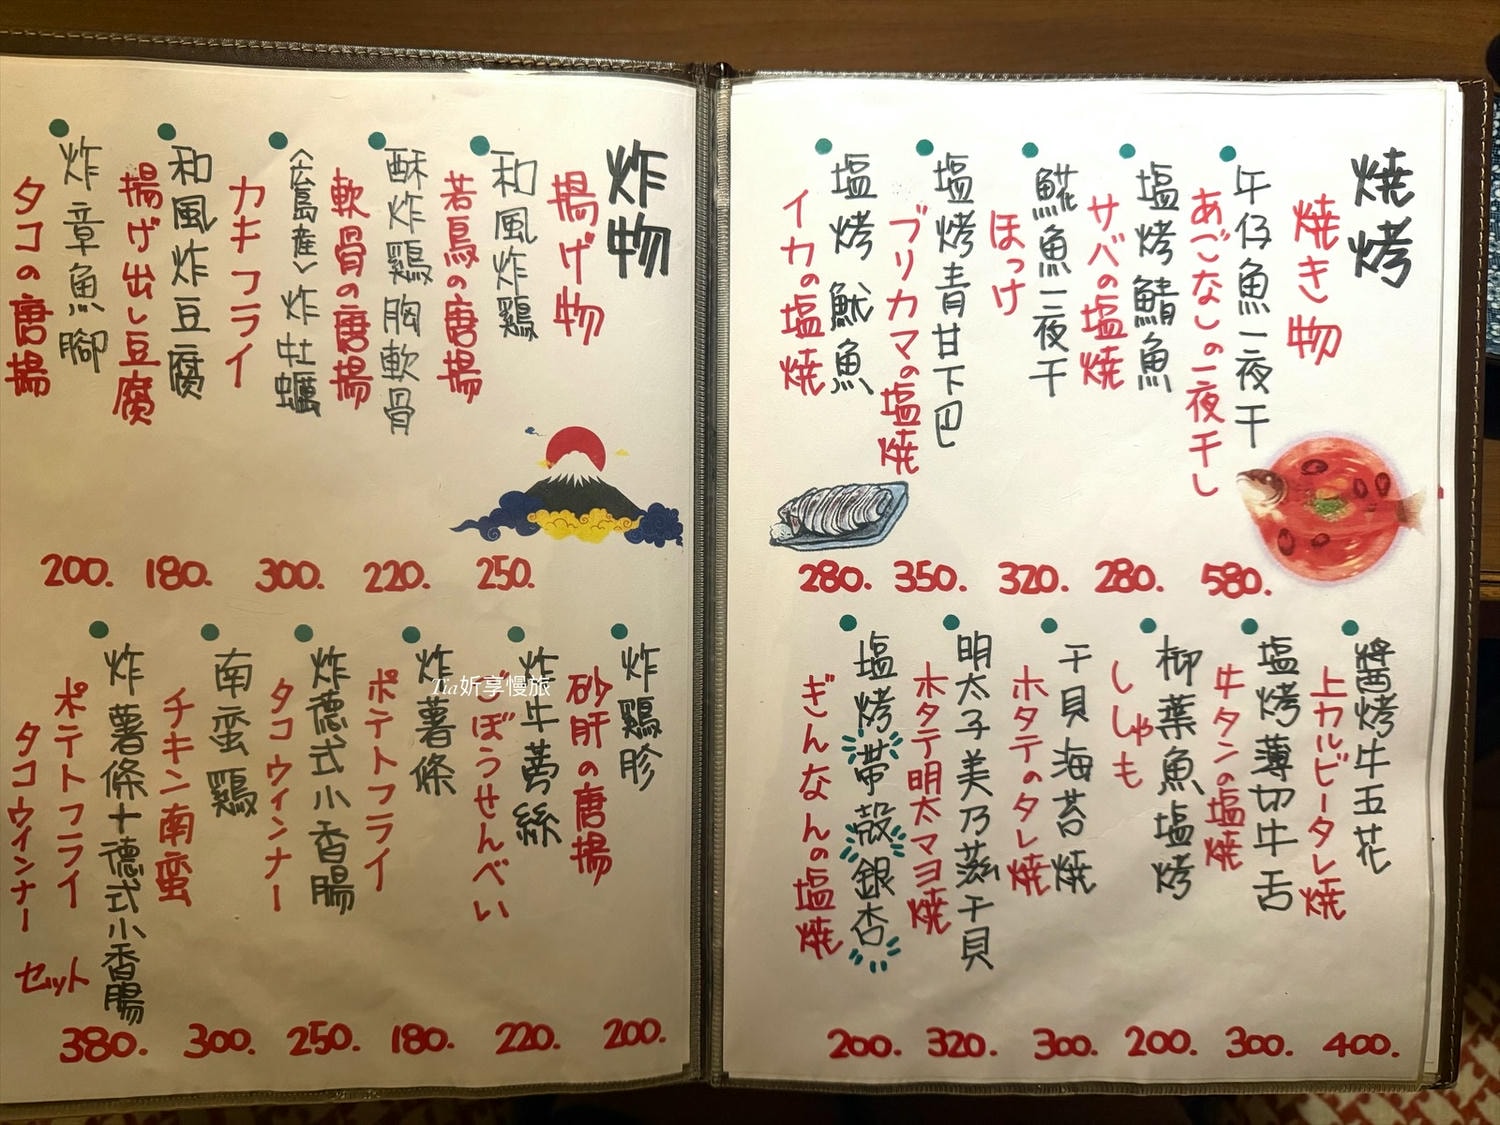 燒烤
焼き物
午仔魚一夜干
あごなしの一夜干し
580.
塩烤鯖魚
サバの塩焼
280.
鯱魚一夜干
ほっけ
320.
塩烤青甘下巴
ブリカマの塩焼
350.
塩烤魷魚
イカの塩焼
280.
醬烤牛五花
上カルビータレ焼
400.
塩烤薄切牛舌
牛タンの塩焼
300.
柳葉魚塩烤
ししゃも
200.
干貝海苔燒
ホタテのタレ焼
300.
明太子美乃茲干貝
ホタテ明太マヨ焼
320.
塩烤帶殼銀杏
ぎんなんの塩焼
200.
炸物
揚げ物
和風炸鶏
若鳥の唐揚
250.
酥炸鶏胸軟骨
軟骨の唐揚
220.
<広島産>炸牡蠣
カキフライ
300.
和風炸豆腐
揚げ出し豆腐
180.
炸章魚腳
タコの唐揚
200.
炸鶏胗
砂肝の唐揚
200.
炸牛蒡絲
ごぼうせんべい
220.
炸薯條
ポテトフライ
180.
炸德式小香腸
タコウィンナー
250.
南蛮鶏
チキン南蛮
300.
炸薯條十德式小香腸
ポテトフライ
タコウィンナー セット
380.
Tia妡享慢旅